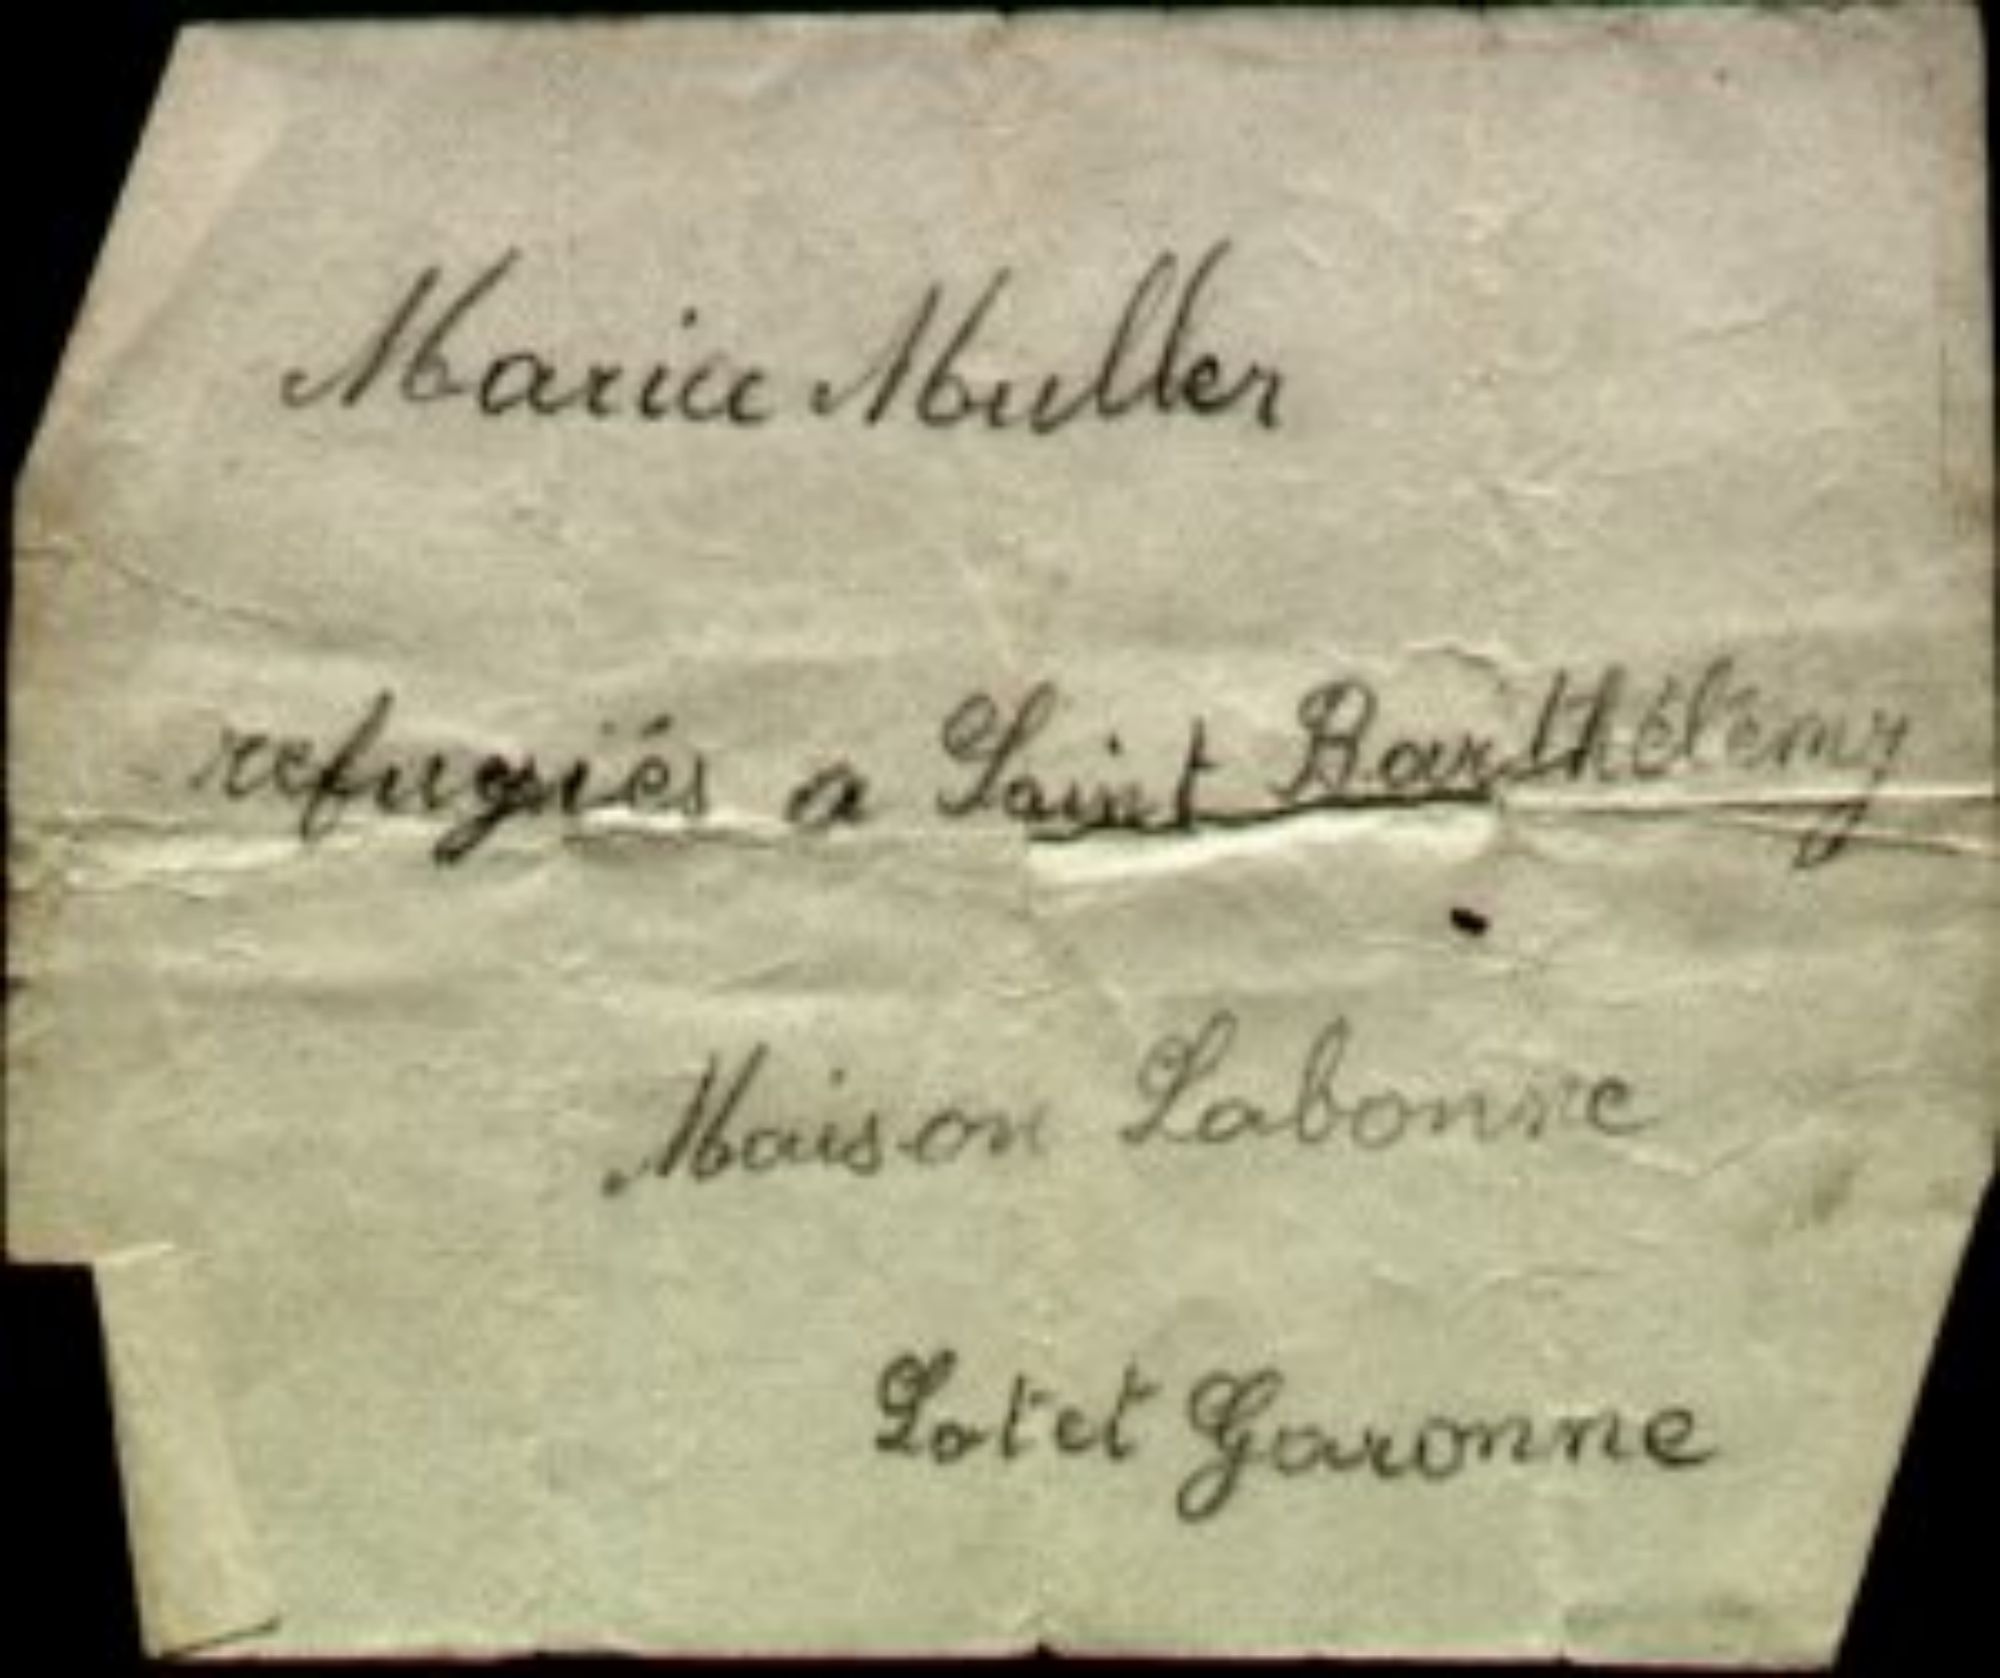 Marie Muller
refugiés a Saint Barthélémy
Maison Labonne
Lot et Garonne